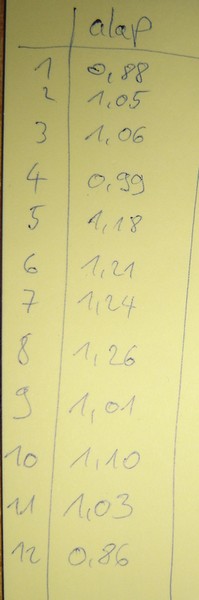 alap
1 0,88
2 1,05
3 1,06
4 0,99
5 1,18
6 1,21
7 1,24
8 1,26
9 1,01
10 1,10
11 1,03
12 0,86